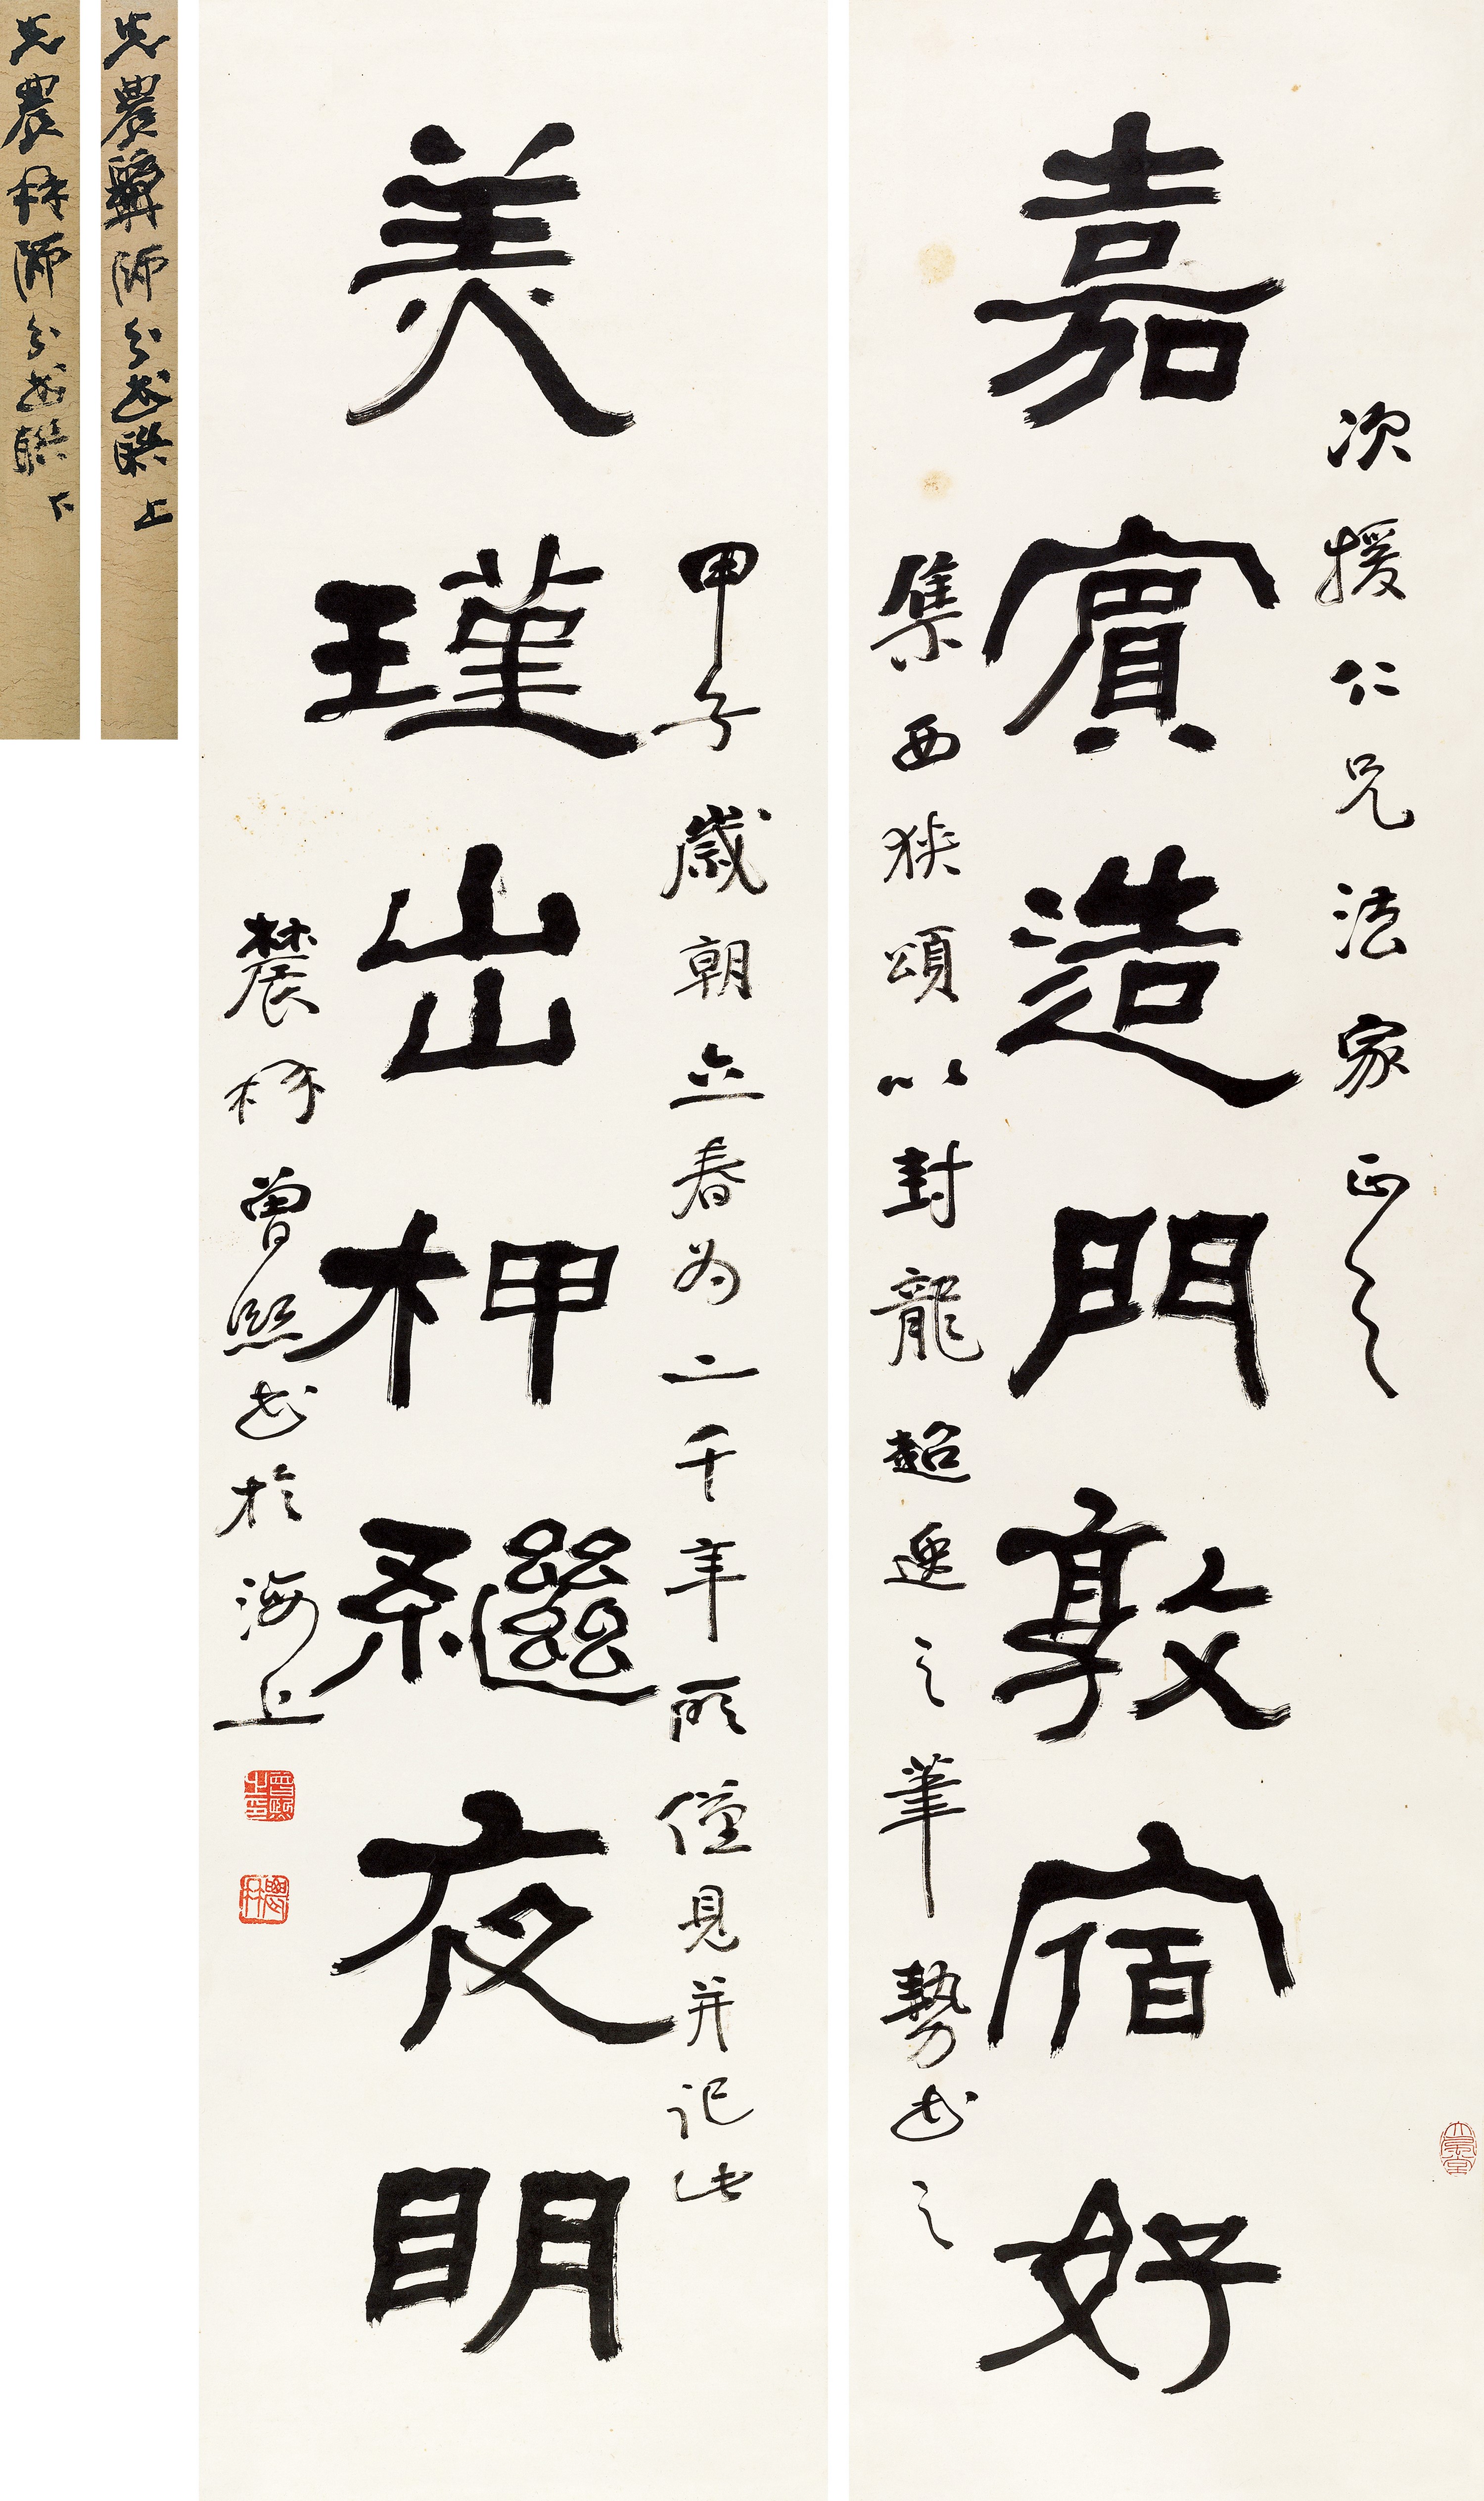 次援仁兄法家正之
嘉賓造門敦宿好
集西狹頌以封龍超逸之筆勢書之
甲子歲朝立春為二千年所僅見并記此
美瑾出柙繼夜明
農髯曾熙書於海上
曾熙之印
農髯
先農髯師分書聯 上
先農髯師分書聯 下